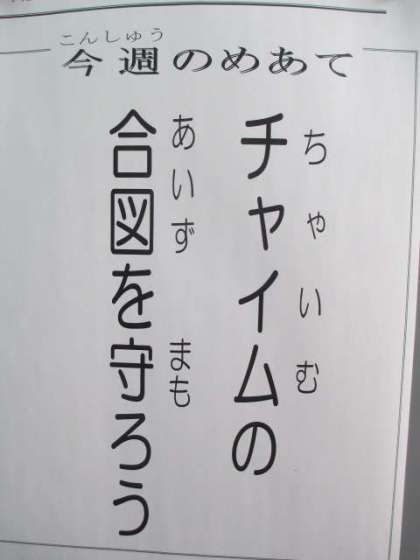 こんしゅう
今週のめあて
ちゃいむ
チャイムの
あいず まも
合図を守ろう